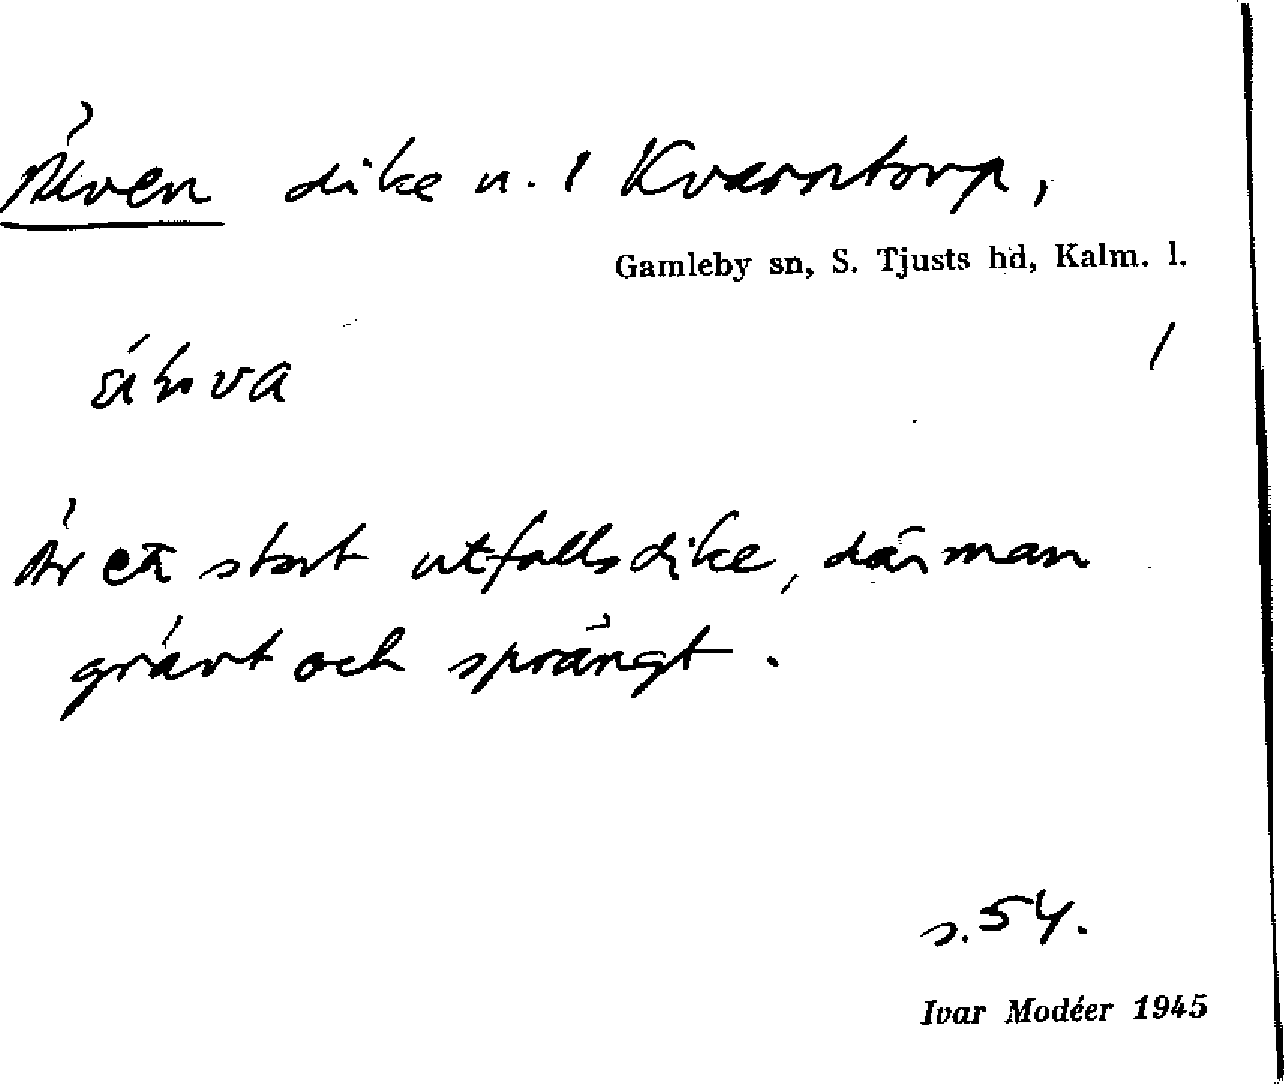 Älven dike u. t Kvarntorp,
Gamleby sn, S. Tjusts hd, Kalm. l.
Är ett stort utfallsdike, där man
grävt och sprängt.
s. 54.
Ivar Modéer 1945